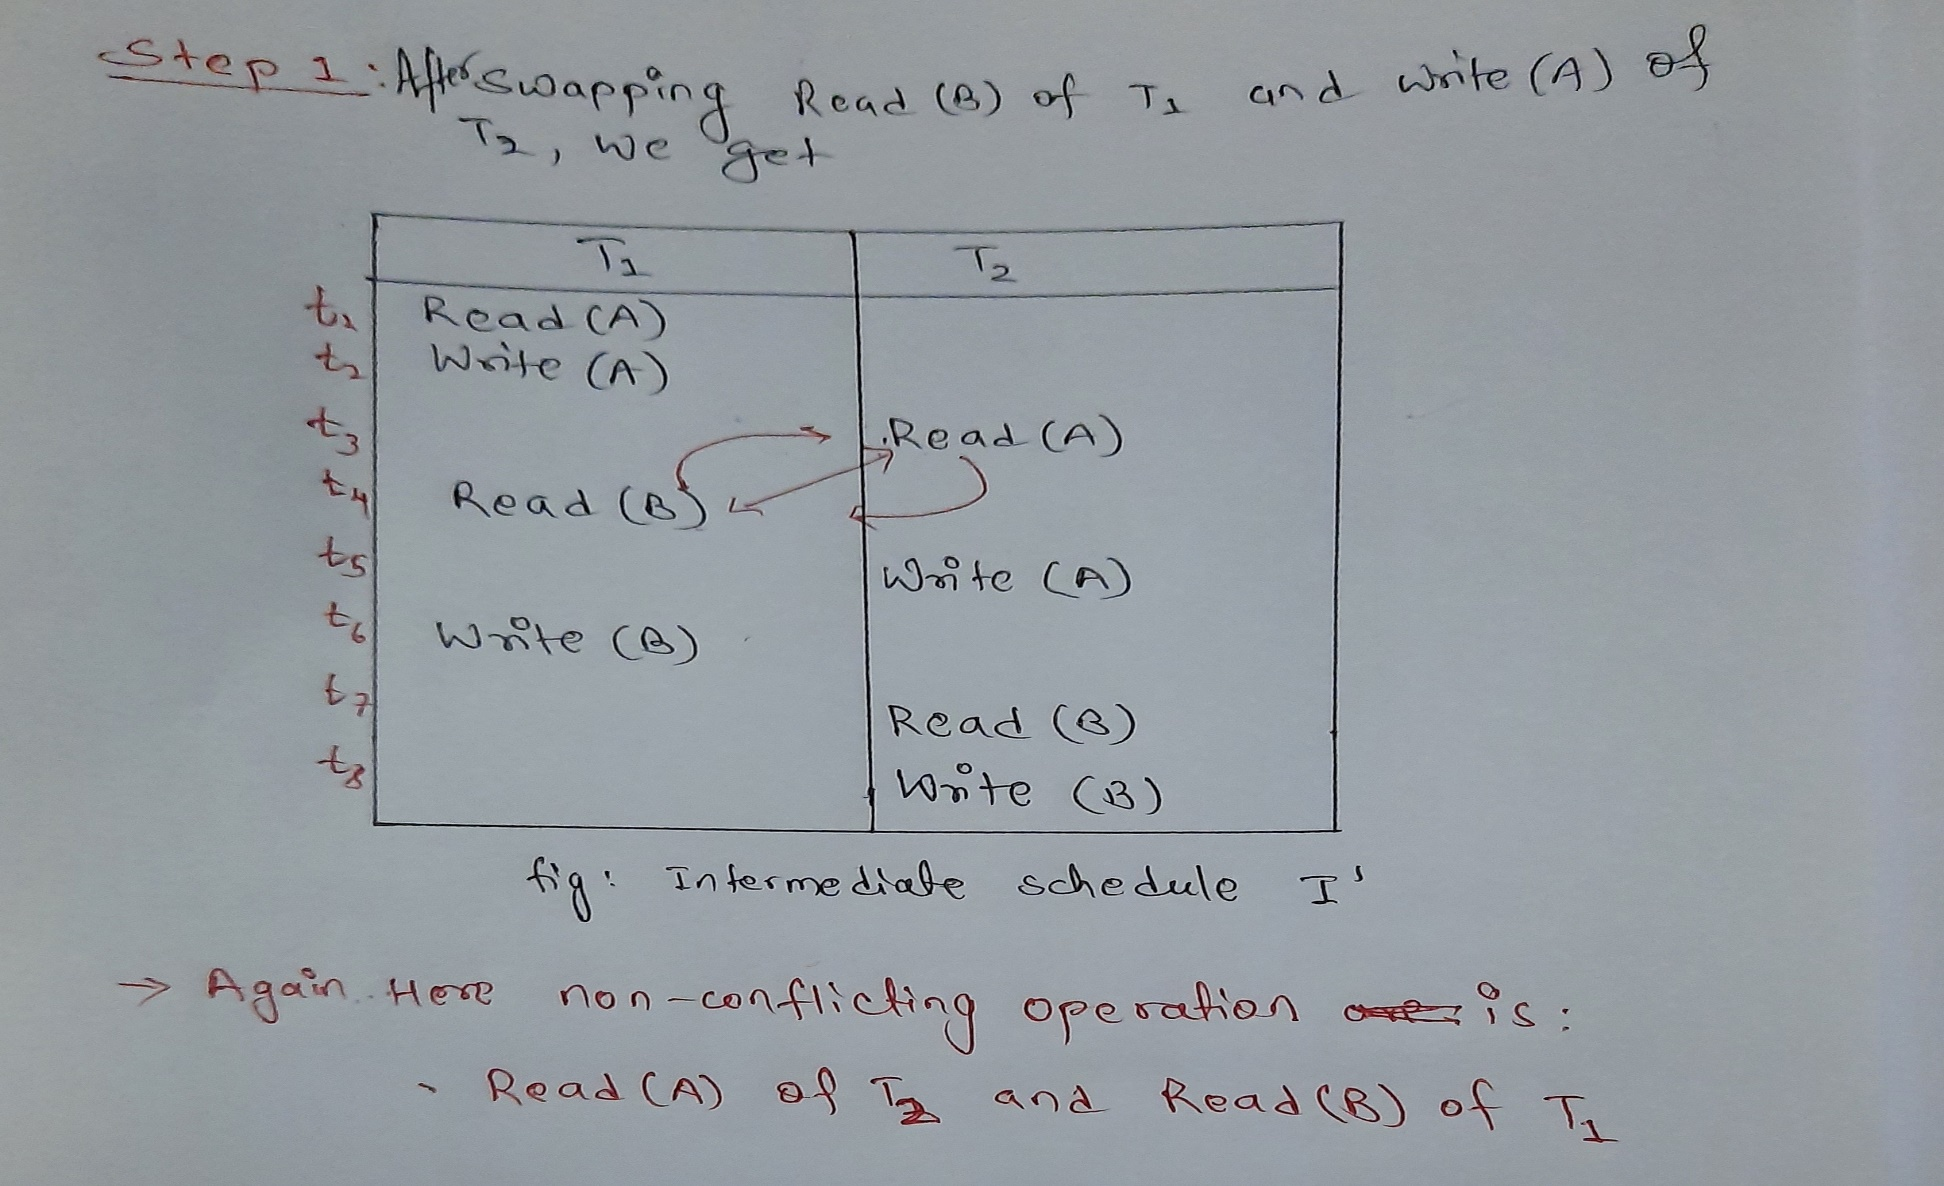 Step 1: After swapping Read (B) of T1 and write (A) of
T2, we get
T1 T2
t1 Read (A)
t2 Write (A)
t3 Read (A)
t4 Read (B)
t5 Write (A)
t6 Write (B)
t7 Read (B)
t8 Write (B)
fig: Intermediate schedule I'
→ Again Here non-conflicting operation is:
• Read (A) of T2 and Read (B) of T1